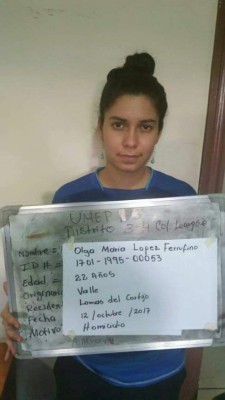 UMEP
Distrito 3-4 Col
Nombre= Olga Maria Lopez Ferrufino
1701-1995-00053
Edad= 22 Años
Valle
Lomas del Cortijo
Fecha 12/octubre/2017
Motivo Homicidio